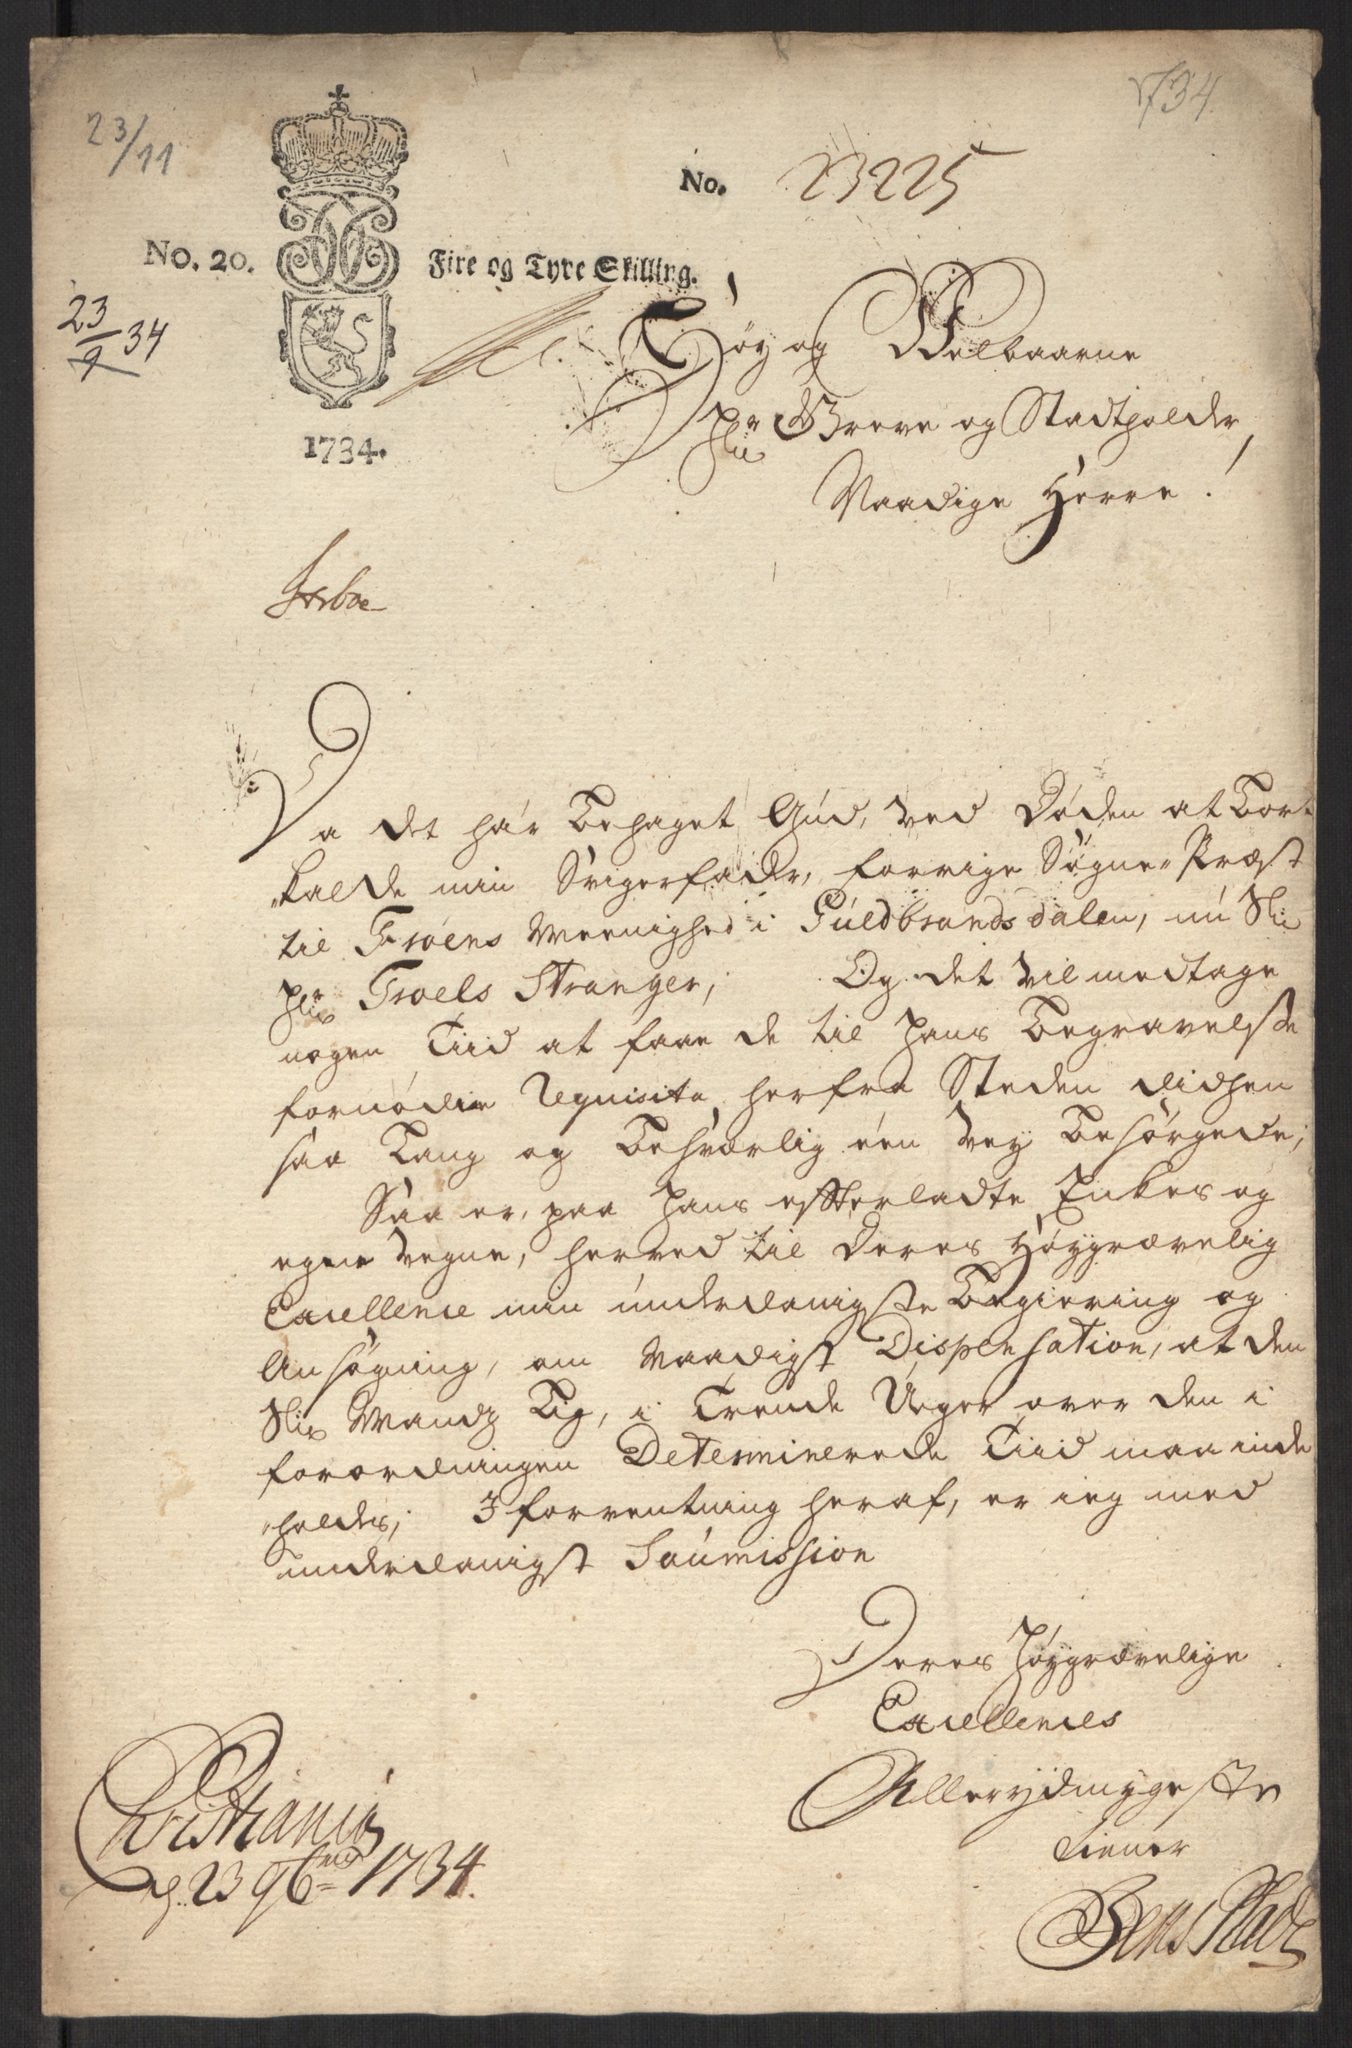 1734.
23/11
No. 23225
No. 20. Fire og Tyve Skilling.
23/9 34
Høy og Welbaarne
Hr Greve og Stadtholder,
Naadige Herre!
1734.
Da det har behaget Gud, ved Døden at bort
"kalde min Svigerfader, forrige Sogne-Præst
til Froens Meenighed i Guldbrandsdalen, nu Sli:
Hr Troels Stranger; Og det vil medtage
nogen Tiid at faae de til hans Begravelse
fornødne Requisita herfra Steden didhen
saa lang og besværlig een Vey besørgede;
Saa er, paa hans efterladte Enkes og
egne Vegne, herved til Deres Høygrævelig
Excellence min underdanigste Begiering og
Ansøgning, om naadigst Dispensation, at den
Sli: Mands Lig, i Trende Uger over den i
forordningen Determinerede Tiid maa inde
"holdes; I forventning heraf, er ieg med
underdanigst Soumission
Deres Høygrævelige
Excellences
Allerydmygeste
tiener
Christiania
d. 23 9bris 1734.